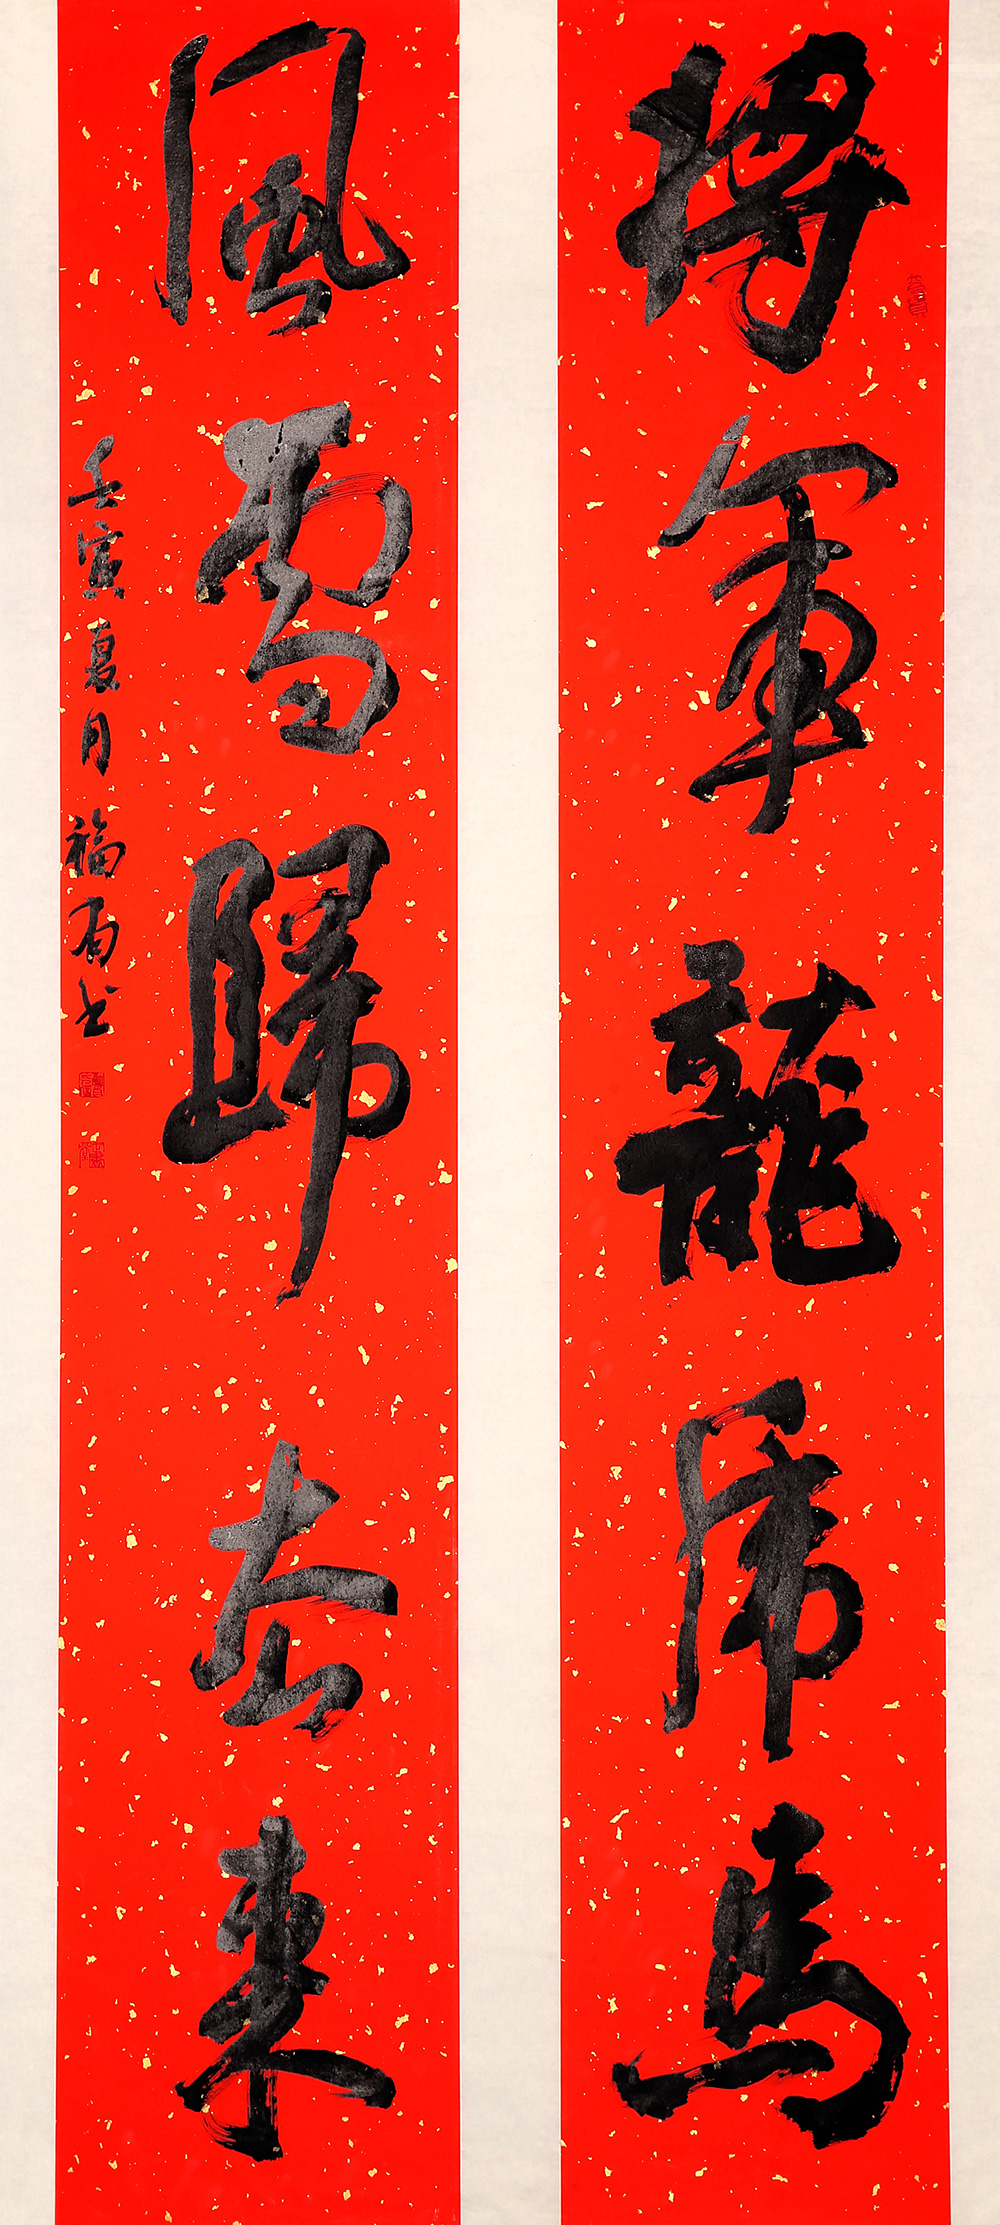 將軍龍虎馬
風雪歸去來
壬寅夏月 福有书